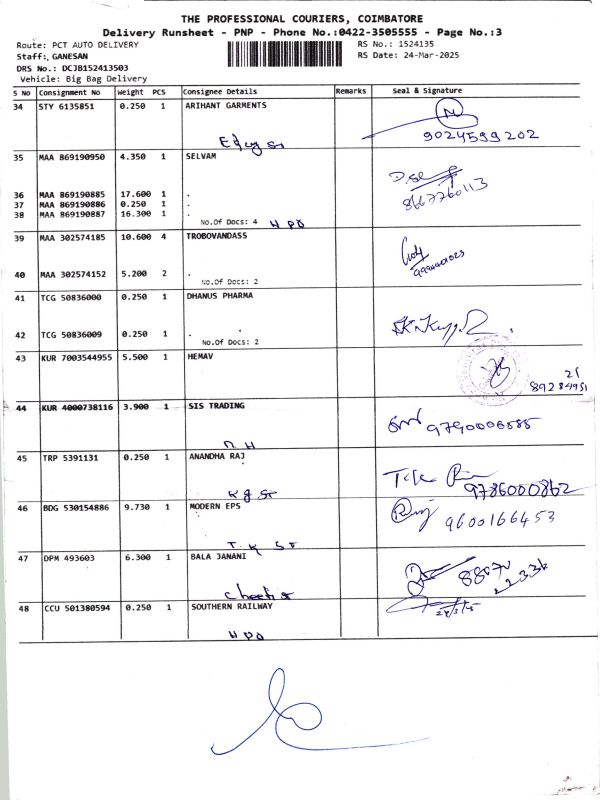 THE PROFESSIONAL COURIERS, COIMBATORE
Delivery Runsheet - PNP - Phone No.:0422-3505555 - Page No.:3
Route: PCT AUTO DELIVERY RS No.: 1524135
Staff:, GANESAN RS Date: 24-Mar-2025
DRS No.: DCJB152413503
Vehicle: Big Bag Delivery
S No Consignment No Weight PCS Consignee Details Remarks Seal & Signature
34 STY 6135851 0.250 1 ARIHANT GARMENTS
9024599202
35 MAA 869190950 4.350 1 SELVAM
36 MAA 869190885 17.600 1 .
8667760113
37 MAA 869190886 0.250 1 .
38 MAA 869190887 16.300 1 .
No.Of Docs: 4 HPO
39 MAA 302574185 10.600 4 TROBOVANDASS
40 MAA 302574152 5.200 2 .
No.Of Docs: 2
41 TCG 50836000 0.250 1 DHANUS PHARMA
42 TCG 50836009 0.250 1 .
No.Of Docs: 2
43 KUR 7003544955 5.500 1 HEMAV
21
89284951
44 KUR 4000738116 3.900 1 SIS TRADING
9790006585
M H
45 TRP 5391131 0.250 1 ANANDHA RAJ
9786000862
46 BDG 530154886 9.730 1 MODERN EPS
9600166453
T K ST
47 DPM 493603 6.300 1 BALA JANANI
48 CCU 501380594 0.250 1 SOUTHERN RAILWAY
HPO